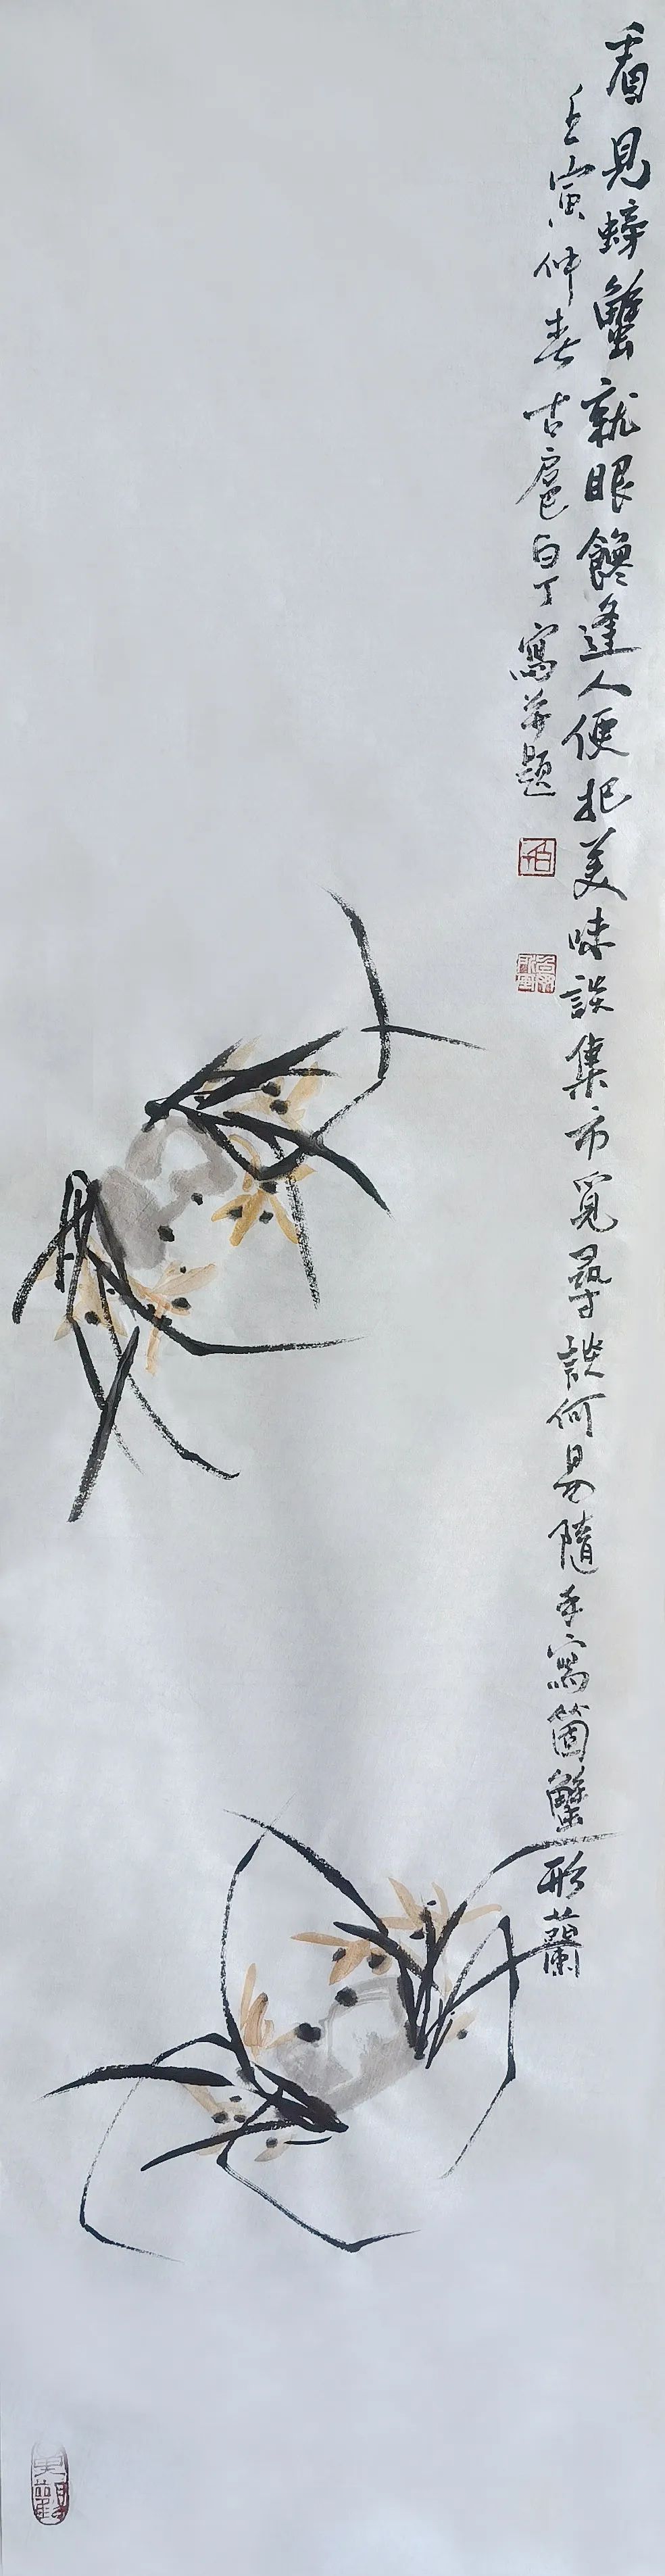 看見螃蟹就眼饞逢人便把美味談集市覓尋談何易隨手寫箇蟹形蘭
壬寅仲春古扈白丁寫并題